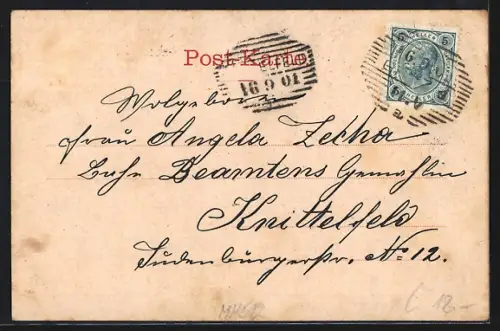 Post-Karte
16 9 01
Wolgeboren
Frau Angela Zecha
Beamtens Gemahlin
Knittelfeld
Judenburgerstr. No 12.
18.-